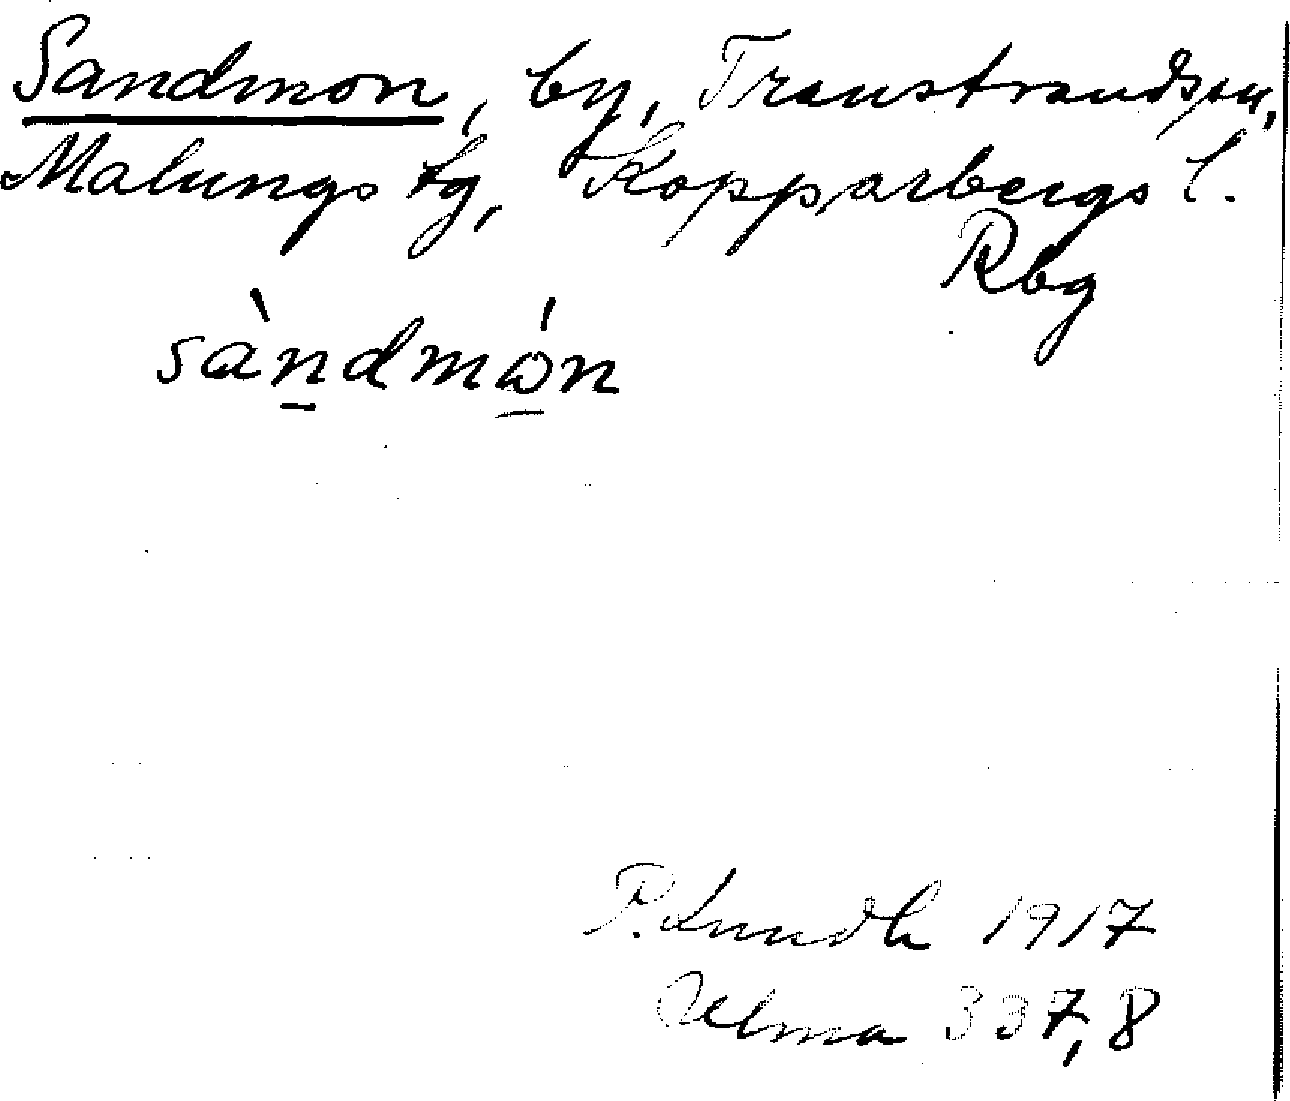 Sandmon, by, Transtrands sn,
Malungs tg, Kopparbergs l.
Rbg
sàndmón
P. Lundh 1917
Ulma 337,8